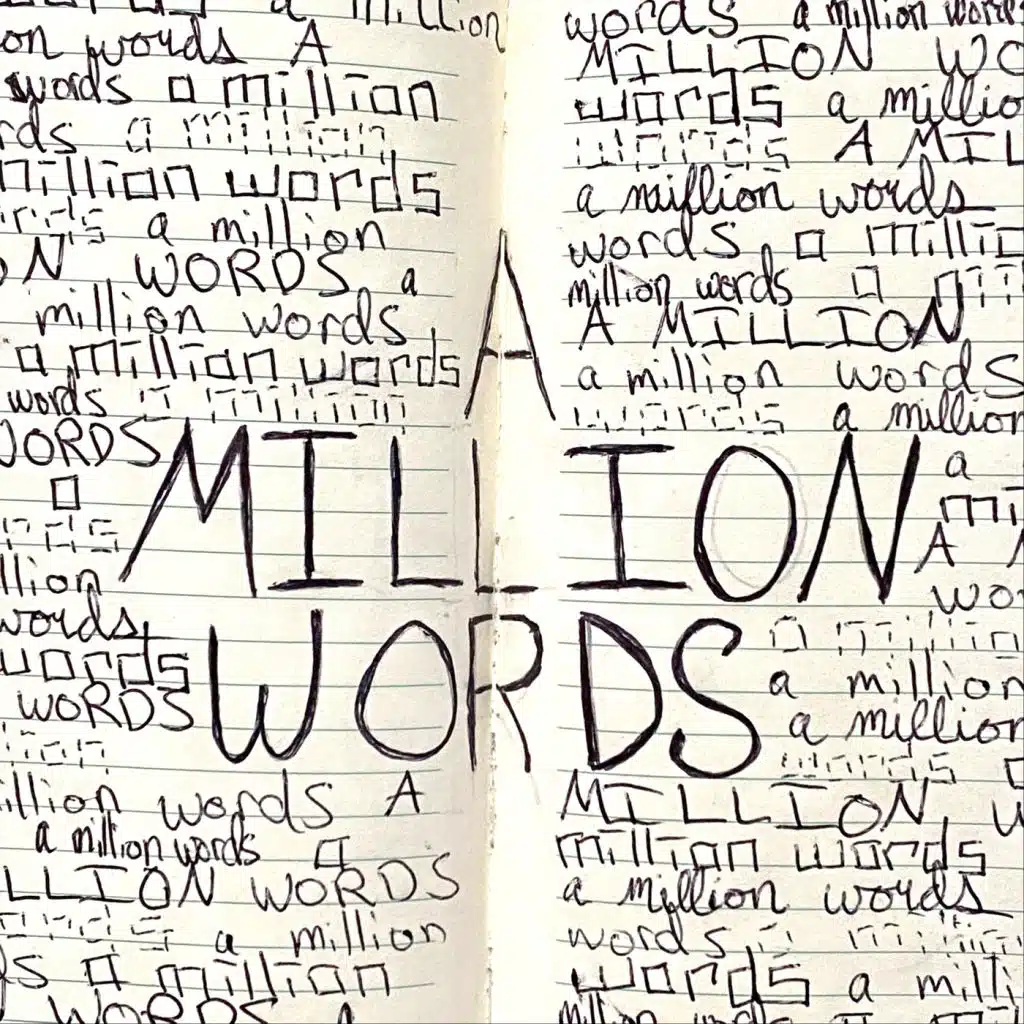 a million
on words A
words a million
rds a million
million words
words a million
ON WORDS a
million words
a million words
words a million
WORDS
a
words
llion
words
words
WORDS
illion words A
a million words a
LLION WORDS
a million
s a million
WORDS a
A
MILLION
WORDS
words a million words
MILLION WO
words a millio
words A MIL
a million words
words a millio
million words a
A MILLION
a million words
words a million
a
mi
A
wo
a million
a million
a million
words
MILLION W
million words
a million words
words million
words a milli
million words